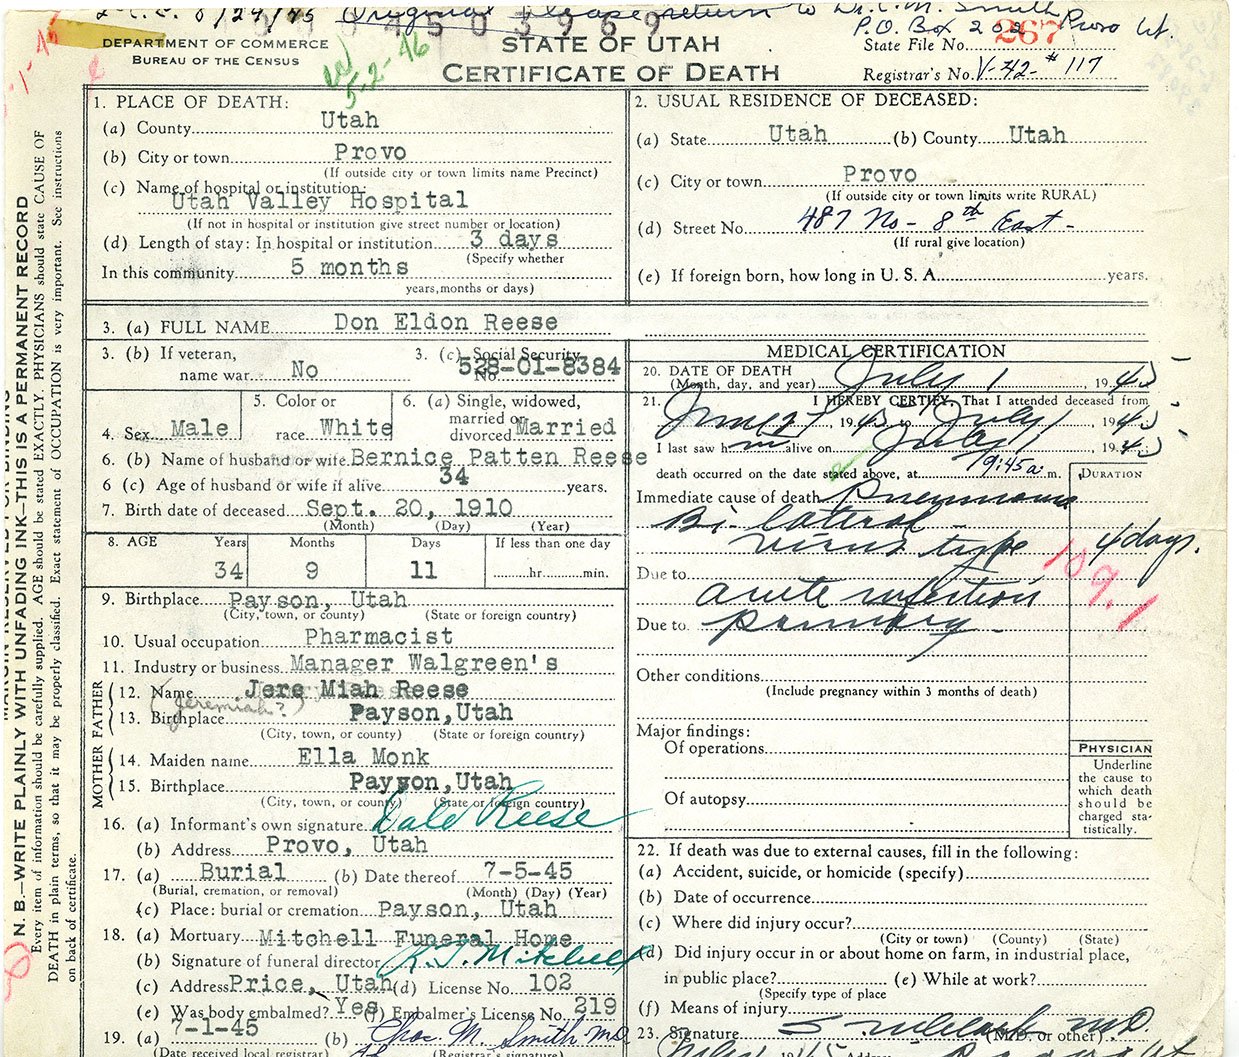 8/24/45 Original Please return to Dr. C. M. Smith
P.O. Box 202 Provo Ut.
4 5 0 3 9 6 9
DEPARTMENT OF COMMERCE
BUREAU OF THE CENSUS
5-2-46
STATE OF UTAH
CERTIFICATE OF DEATH
State File No. 267
Registrar's No. V-42-#117
MARGIN RESERVED FOR BINDING
N. B.—WRITE PLAINLY WITH UNFADING INK—THIS IS A PERMANENT RECORD
Every item of information should be carefully supplied. AGE should be stated EXACTLY. PHYSICIANS should state CAUSE OF
DEATH in plain terms, so that it may be properly classified. Exact statement of OCCUPATION is very important. See instructions
on back of certificate.
1. PLACE OF DEATH:
(a) County Utah
(b) City or town Provo
(If outside city or town limits name Precinct)
(c) Name of hospital or institution:
Utah Valley Hospital
(If not in hospital or institution give street number or location)
(d) Length of stay: In hospital or institution 3 days
(Specify whether
In this community 5 months
years, months or days)
2. USUAL RESIDENCE OF DECEASED:
(a) State Utah (b) County Utah
(c) City or town Provo
(If outside city or town limits write RURAL)
(d) Street No. 487 No - 8th East -
(If rural give location)
(e) If foreign born, how long in U. S. A. years.
3. (a) FULL NAME Don Eldon Reese
3. (b) If veteran,
name war No
3. (c) Social Security
No. 528-01-8384
4. Sex Male
5. Color or
race White
6. (a) Single, widowed,
married or
divorced Married
6. (b) Name of husband or wife Bernice Patten Reese
6 (c) Age of husband or wife if alive 34 years.
7. Birth date of deceased Sept. 20, 1910
(Month) (Day) (Year)
8. AGE Years Months Days If less than one day
34 9 11 hr. min.
9. Birthplace Payson, Utah
(City, town, or county) (State or foreign country)
10. Usual occupation Pharmacist
11. Industry or business Manager Walgreen's
FATHER
12. Name Jere Miah Reese
(Jeremiah?)
13. Birthplace Payson, Utah
(City, town, or county) (State or foreign country)
MOTHER
14. Maiden name Ella Monk
15. Birthplace Payson, Utah
(City, town, or county) (State or foreign country)
16. (a) Informant's own signature Dale Reese
(b) Address Provo, Utah
17. (a) Burial (b) Date thereof 7-5-45
(Burial, cremation, or removal) (Month) (Day) (Year)
(c) Place: burial or cremation Payson, Utah
18. (a) Mortuary Mitchell Funeral Home
(b) Signature of funeral director K. J. Mitchell
(c) Address Price, Utah (d) License No. 102
(e) Was body embalmed? Yes (f) Embalmer's License No. 219
19. (a) 7-1-45 (b) Chas. M. Smith MD
(Date received local registrar) (Registrar's signature)
MEDICAL CERTIFICATION
20. DATE OF DEATH
(Month, day, and year) July 1, 1945
21. I HEREBY CERTIFY, That I attended deceased from
June 27, 1945 to July 1, 1945
I last saw him alive on July 1, 1945
death occurred on the date stated above, at 9:45 a. m.
DURATION
Immediate cause of death Pneumonia
Bi-lateral -
virus type 4 days.
109.1
Due to
acute infection
Due to primary
Other conditions
(Include pregnancy within 3 months of death)
Major findings:
Of operations
Of autopsy
PHYSICIAN
Underline
the cause to
which death
should be
charged sta-
tistically.
22. If death was due to external causes, fill in the following:
(a) Accident, suicide, or homicide (specify)
(b) Date of occurrence
(c) Where did injury occur?
(City or town) (County) (State)
(d) Did injury occur in or about home on farm, in industrial place,
in public place? (e) While at work?
(Specify type of place
(f) Means of injury
23. Signature MD. (M.D. or other)
July 1945 Address